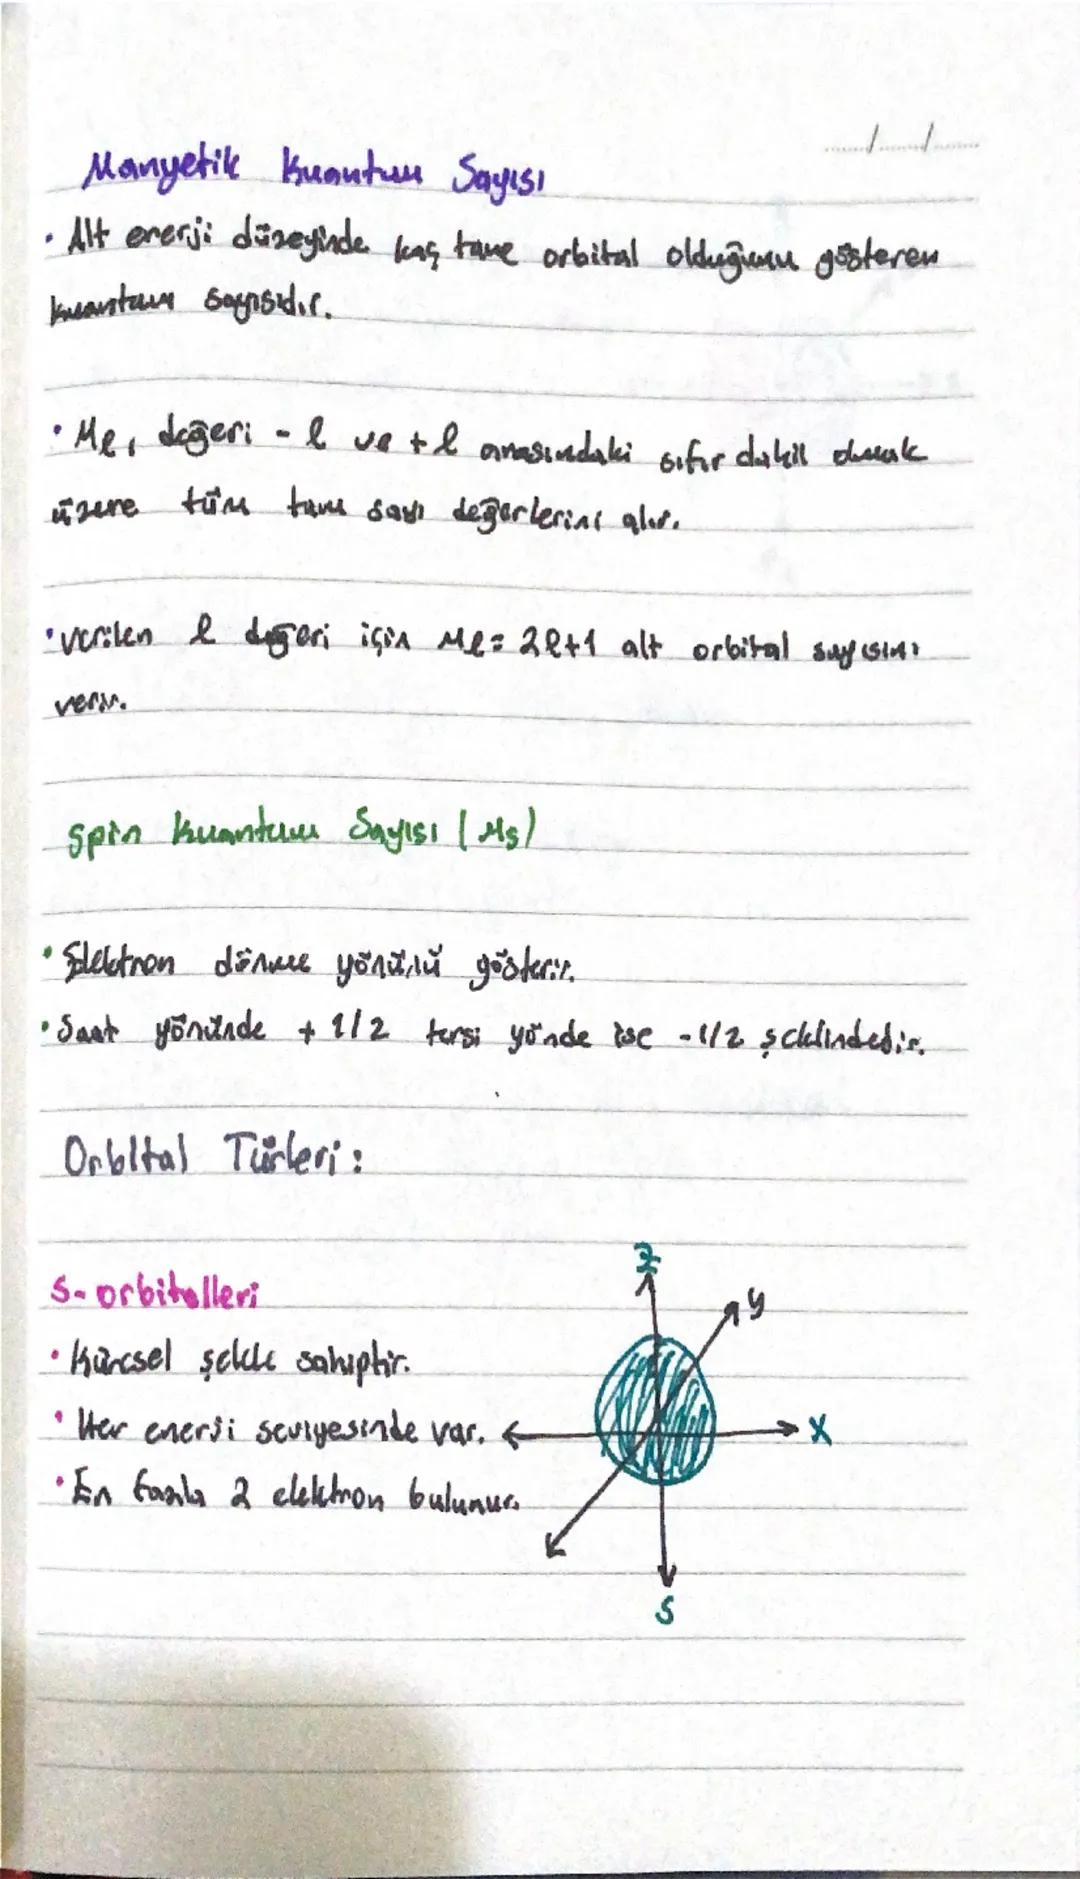 Manyetik Kuantum Sayısı
• Alt enerji düzeyinde kaç tane orbital olduğunu gösteren
kuantum sayısıdır.
• Mℓ, değeri -ℓ ve +ℓ arasındaki sıfır dahil olmak
üzere tüm tam sayı değerlerini alır.
• verilen ℓ değeri için Mℓ= 2ℓ+1 alt orbital sayısını
verir.
Spin Kuantum Sayısı (Ms)
• Elektron dönme yönünü gösterir.
• Saat yönünde + 1/2 tersi yönde ise -1/2 şeklindedir.
Orbital Türleri:
s- orbitalleri
• Küresel şekle sahiptir.
• Her enerji seviyesinde var.
• En fazla 2 elektron bulunur.
z
y
x
s